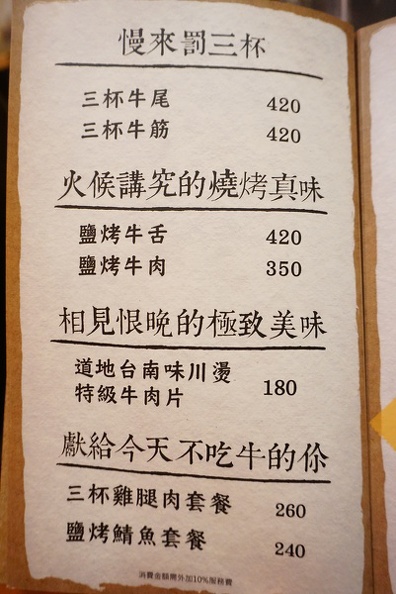 慢來罰三杯
三杯牛尾 420
三杯牛筋 420
火候講究的燒烤真味
鹽烤牛舌 420
鹽烤牛肉 350
相見恨晚的極致美味
道地台南味川燙
特級牛肉片 180
獻給今天不吃牛的你
三杯雞腿肉套餐 260
鹽烤鯖魚套餐 240
消費金額需外加10%服務費